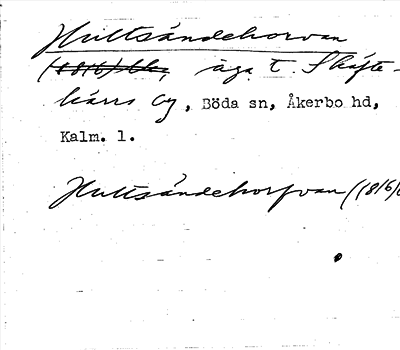 Hultsändehorvan
(1816) bla, äga t. Skäfte-
kärrs by, Böda sn, Åkerbo hd,
Kalm. l.
Hultsändehorfvan (1816)